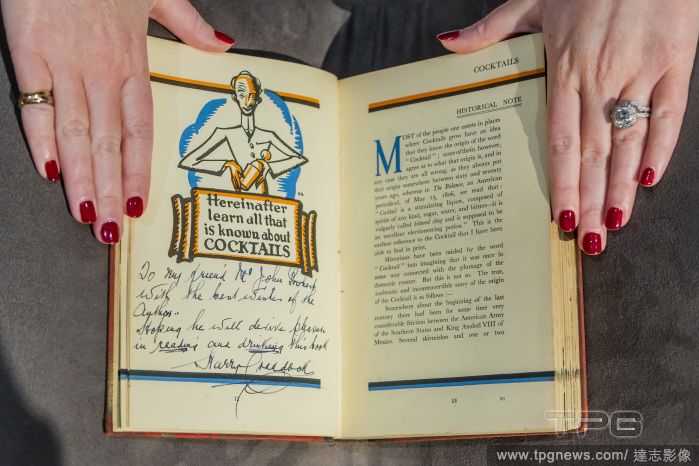 Hereinafter
learn all that
is known about
COCKTAILS
To my friend Mr John
with the best wishes of the
Author.
Hoping he will derive pleasure
in reading and drinking this book
Harry Craddock
12
COCKTAILS
HISTORICAL NOTE
MOST of the people one meets in places
where Cocktails grow have an idea
that they know the origin of the word
"Cocktail"; none of them, however,
agree as to what that origin is, and in
any case they are all wrong, as they always put
that origin somewhere between sixty and seventy
years ago, whereas in The Balance, an American
periodical, of May 13, 1806, we read that:
"Cocktail is a stimulating liquor, composed of
spirits of any kind, sugar, water, and bitters—it is
vulgarly called bittered sling and is supposed to be
an excellent electioneering potion." This is the
earliest reference to the Cocktail that I have been
able to find in print.
Historians have been misled by the word
"Cocktail" into imagining that it was once in
some way connected with the plumage of the
domestic rooster. But this is not so. The true,
authentic and incontrovertible story of the origin
of the Cocktail is as follows:—
Somewhere about the beginning of the last
century there had been for some time very
considerable friction between the American Army
of the Southern States and King Axolotl VIII of
Mexico. Several skirmishes and one or two
13
TPG
www.tpgnews.com/ 達志影像